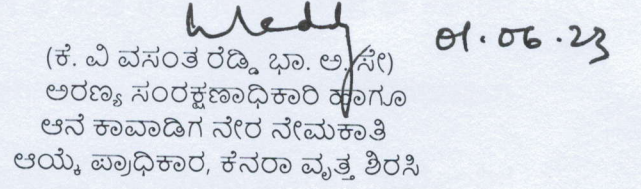 01.06.23
(ಕೆ. ವಿ ವಸಂತ ರೆಡ್ಡಿ ಭಾ. ಅ. ಸೇ)
ಅರಣ್ಯ ಸಂರಕ್ಷಣಾಧಿಕಾರಿ ಹಾಗೂ
ಆನೆ ಕಾವಾಡಿಗ ನೇರ ನೇಮಕಾತಿ
ಆಯ್ಕೆ ಪ್ರಾಧಿಕಾರ, ಕೆನರಾ ವೃತ್ತ ಶಿರಸಿ